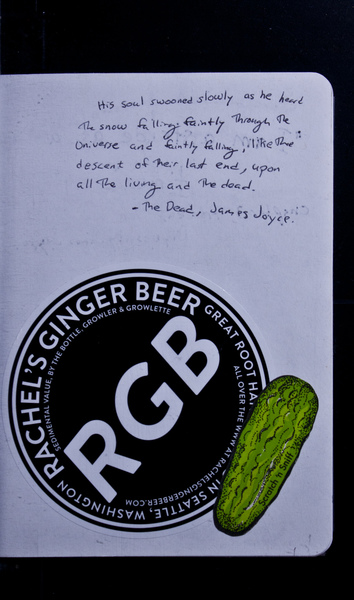 His soul swooned slowly as he heard
the snow falling faintly through the
Universe and faintly falling, like the
descent of their last end, upon
all the living and the dead.
- The Dead, James Joyce.
RACHEL'S GINGER BEER
GREAT ROOT HA
SEDIMENTAL VALUE, BY THE BOTTLE, GROWLER & GROWLETTE
ALL OVER THE WWW AT RACHELSGINGERBEER.COM
RGB
IN SEATTLE, WASHINGTON
Scratch n Sniff